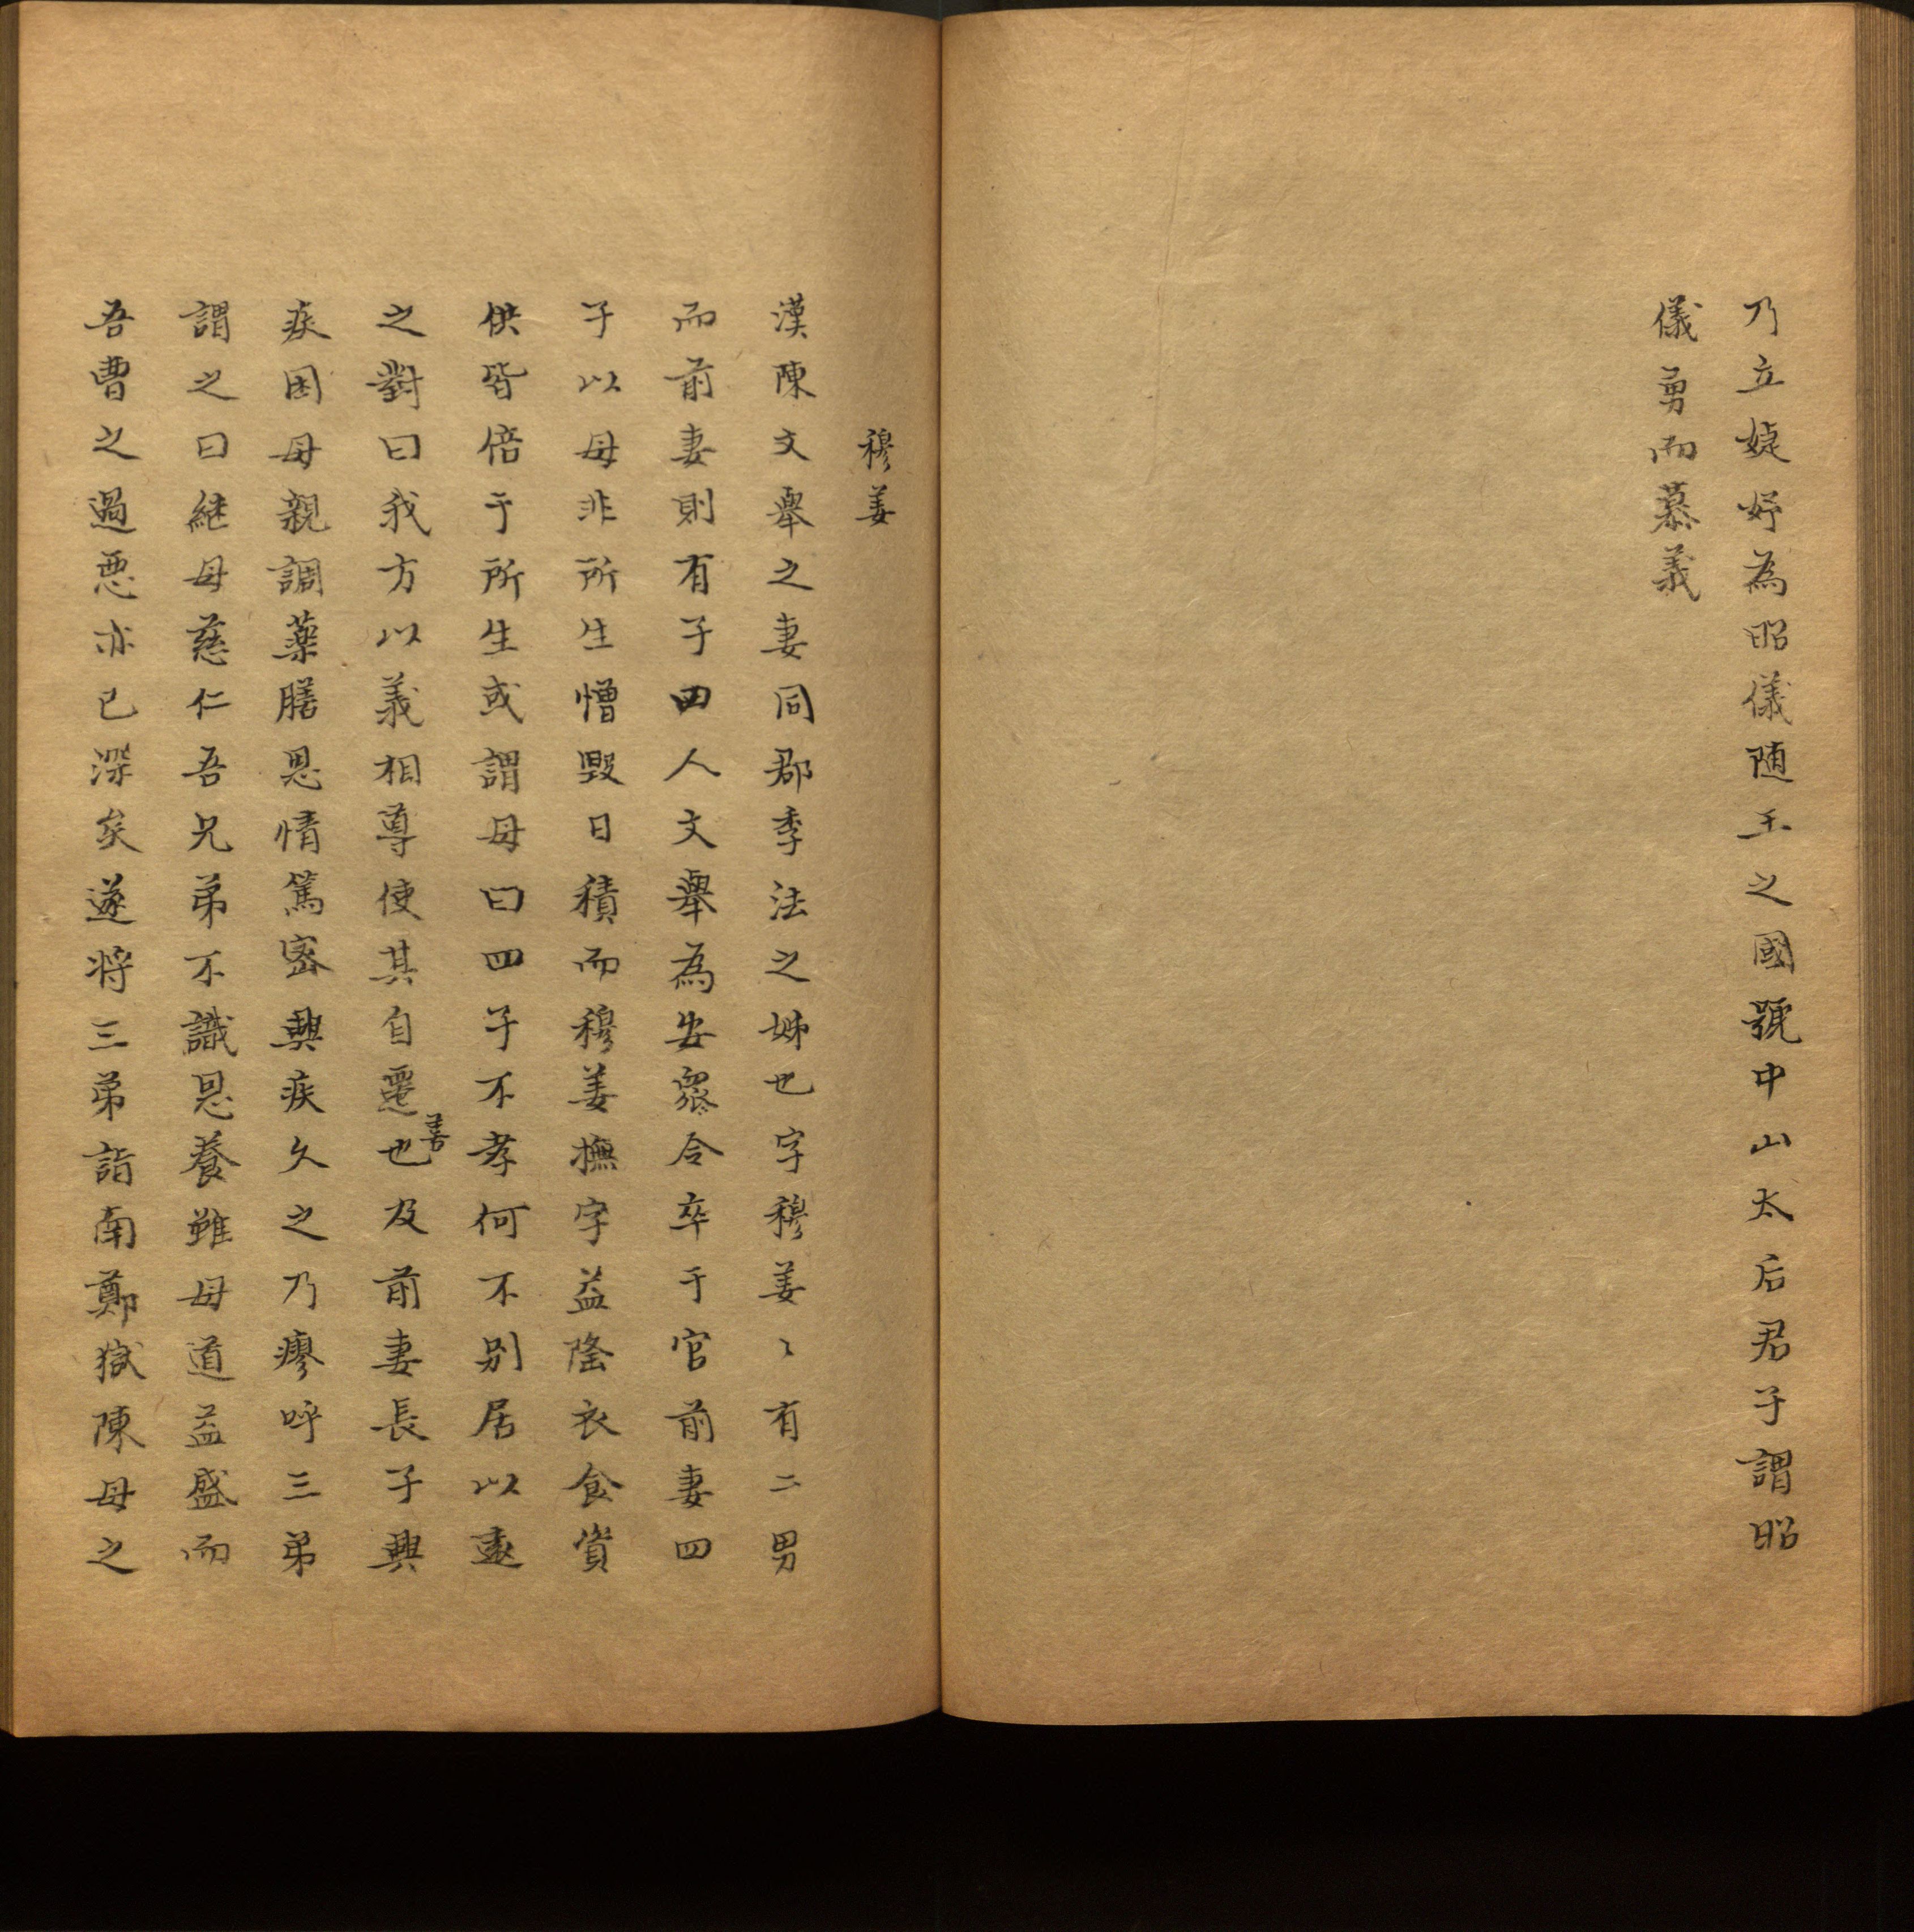 乃立婕妤為昭儀随王之國號中山太后君子謂昭
儀勇而慕義
穆姜
漢陳文舉之妻同郡李法之姊也字穆姜〻有二男
而前妻則有子四人文舉為安衆令卒于官前妻四
子以母非所生憎毀日積而穆姜撫字益隆衣食資
供皆倍于所生或謂母曰四子不孝何不别居以遠
之對曰我方以義相導使其自遷善也及前妻長子興
疾困母親調藥膳恩情篤密興疾久之乃瘳呼三弟
謂之曰継母慈仁吾兄弟不識恩養雖母道益盛而
吾曹之過惡亦已深矣遂将三弟詣南鄭獄陳母之